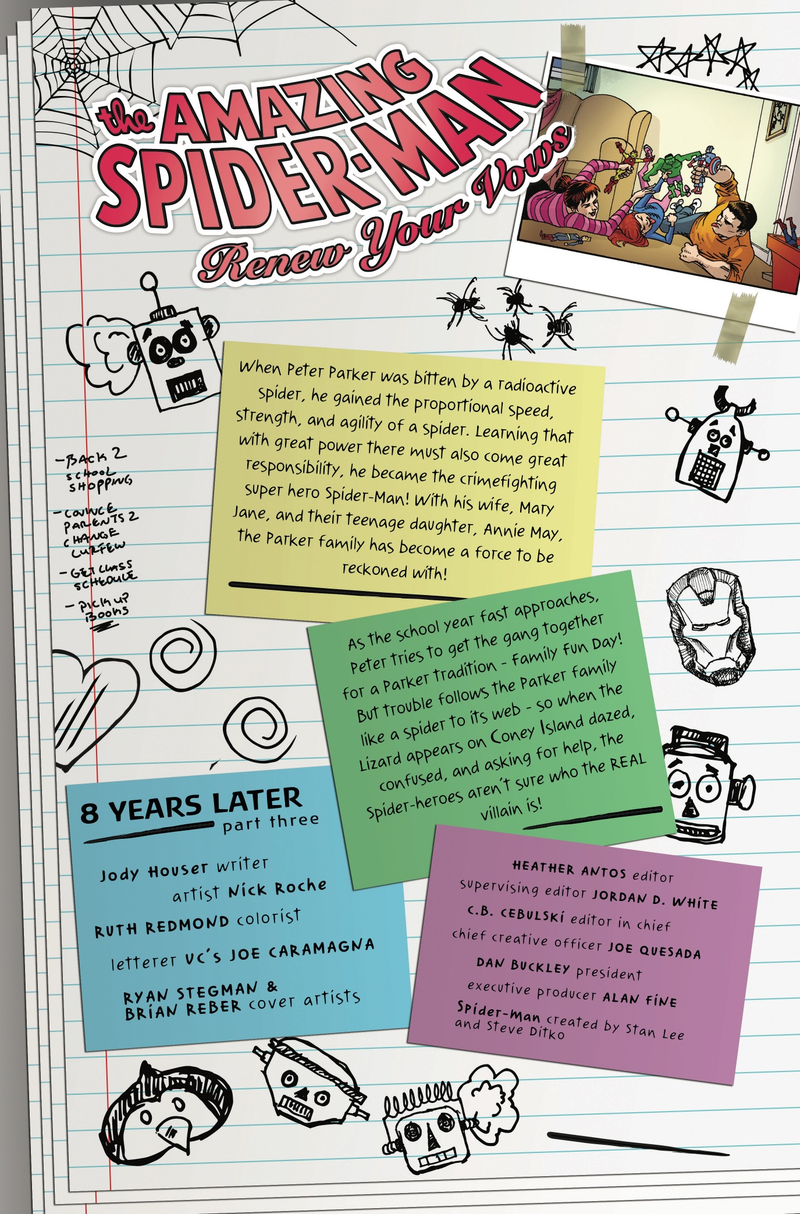 the AMAZING
SPIDER-MAN
Renew Your Vows
When Peter Parker was bitten by a radioactive
spider, he gained the proportional speed,
strength, and agility of a spider. Learning that
with great power there must also come great
responsibility, he became the crimefighting
super hero Spider-Man! With his wife, Mary
Jane, and their teenage daughter, Annie May,
the Parker family has become a force to be
reckoned with!
- BACK 2
SCHOOL
SHOPPING
- CONVINCE
PARENTS 2
CHANGE
CURFEW
- GET CLASS
SCHEDULE
- PICK UP
BOOKS
As the school year fast approaches,
Peter tries to get the gang together
for a Parker tradition - Family Fun Day!
But trouble follows the Parker family
like a spider to its web - so when the
Lizard appears on Coney Island dazed,
confused, and asking for help, the
Spider-heroes aren't sure who the REAL
villain is!
8 YEARS LATER
part three
Jody Houser writer
artist Nick Roche
RUTH REDMOND colorist
letterer VC's JOE CARAMAGNA
RYAN STEGMAN &
BRIAN REBER cover artists
HEATHER ANTOS editor
supervising editor JORDAN D. WHITE
C.B. CEBULSKI editor in chief
chief creative officer JOE QUESADA
DAN BUCKLEY president
executive producer ALAN FINE
Spider-Man created by Stan Lee
and Steve Ditko